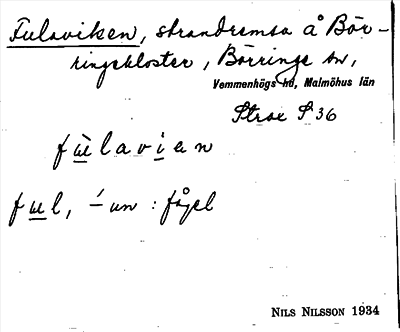 Fulaviken, strandremsa å Bör-
ringekloster, Börringe sn,
Vemmenhögs hd, Malmöhus län
Stroe S 36
fù̲lavi̲an
fu̲l, ´-un : fågel
NILS NILSSON 1934